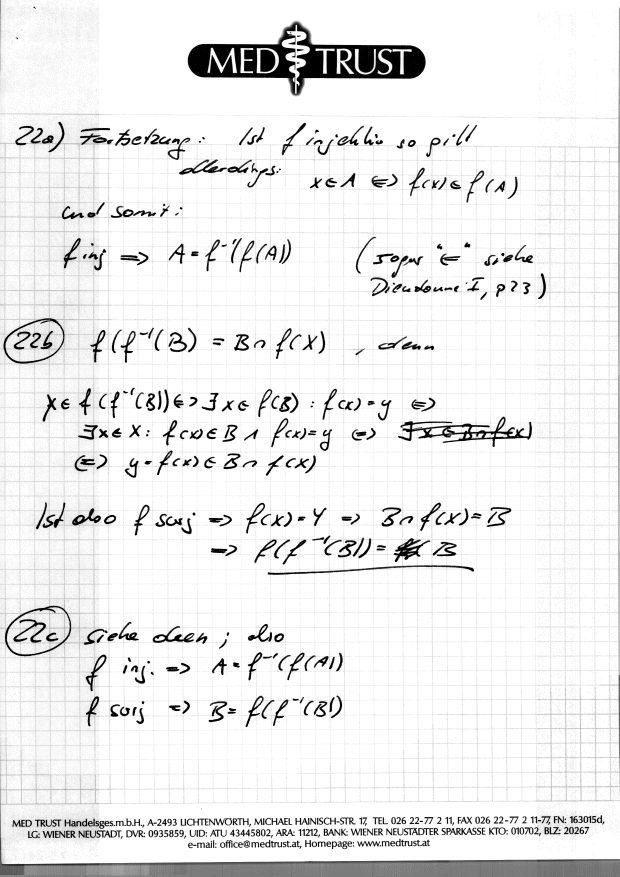 MED TRUST
22a) Fortsetzung: Ist f injektiv so gilt
allerdings: x∈A ⇔ f(x)∈f(A)
und somit:
f inj ⇒ A = f⁻¹(f(A)) (sogar "⇐" siehe
Dieudonné I, p23)
22b f(f⁻¹(B) = B∩f(X) , denn
x∈f(f⁻¹(B)) ⇔ ∃x∈f(B) : f(x)=y ⇔
∃x∈X: f(x)∈B ∧ f(x)=y ⇔ ∃x∈B∩f(x)
⇔ y=f(x)∈B∩f(X)
Ist also f surj ⇒ f(X)=Y ⇒ B∩f(X)=B
⇒ f(f⁻¹(B)) = B
22c siehe oben ; also
f inj. ⇒ A=f⁻¹(f(A))
f surj ⇒ B=f(f⁻¹(B))
MED TRUST Handelsges.m.b.H., A-2493 LICHTENWÖRTH, MICHAEL HAINISCH-STR. 17, TEL. 026 22-77 2 11, FAX 026 22-77 2 11-77, FN: 163015d,
LG: WIENER NEUSTADT, DVR: 0935859, UID: ATU 43445802, ARA: 11212, BANK: WIENER NEUSTÄDTER SPARKASSE KTO: 010702, BLZ: 20267
e-mail: office@medtrust.at, Homepage: www.medtrust.at